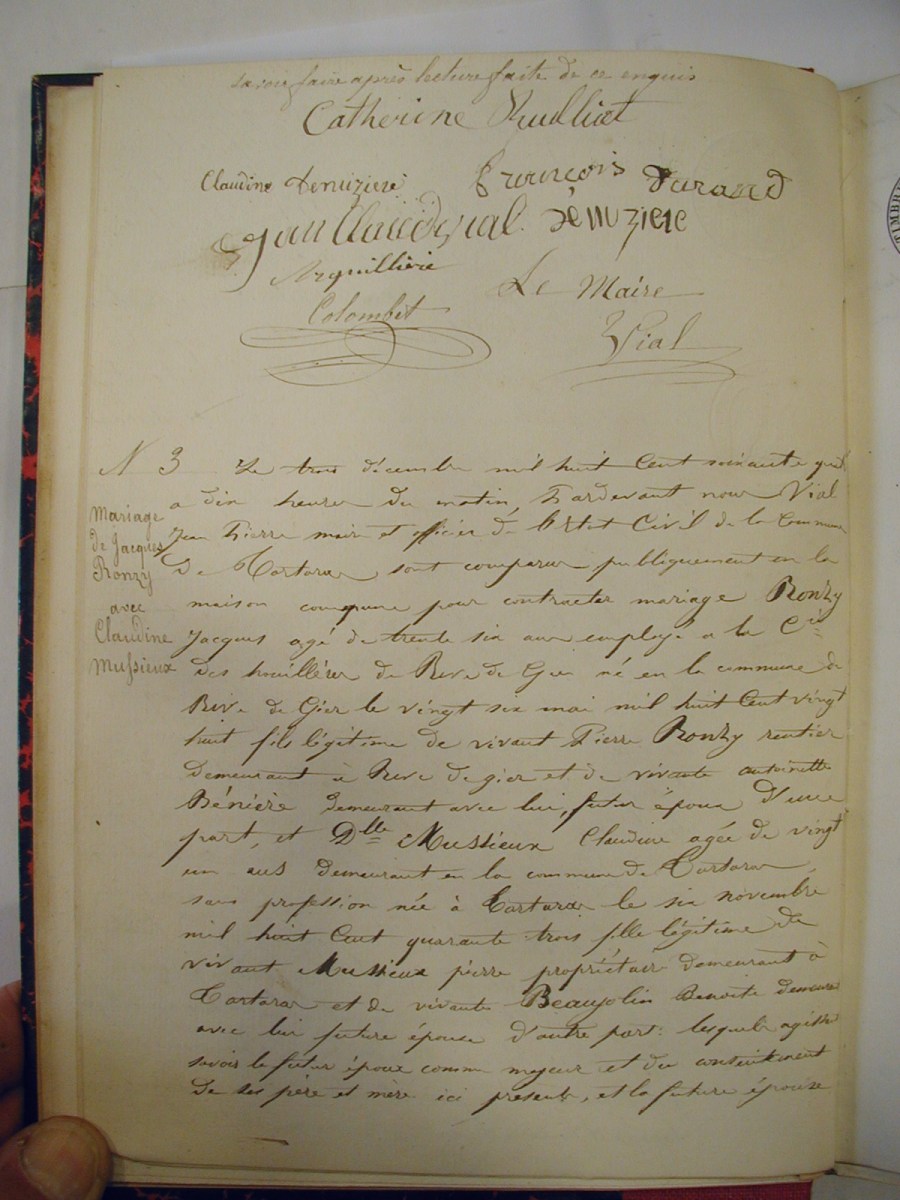 savoir faire après lecture faite de ce enquis
Catherine
Claudine Denuziere françois durand
Jean Claude vial. Dénuzière
Arquillière
Colombet
Le Maire
Vial
N 3 Le trois décembre mil huit Cent soixante quatre
a dix heures du matin, Pardevant nous Vial
Jean Pierre maire et officier de l'état Civil de la Commune
De Tartaras sont comparus publiquement en la
maison commune pour contracter mariage Ronzy
Jacques agé de trente six ans employé a la Cie
des houillères de Rive de Gier né en la commune de
Rive de Gier le vingt six mai mil huit Cent vingt
huit fils légitime de vivant Pierre Ronzy rentier
demeurant à Rive de gier et de vivante antoinette
Bénière demeurant avec lui, futur époux d'une
part, et Dlle Mussieux Claudine agée de vingt
un ans demeurant en la commune de Tartaras,
sans profession née à Tartaras le six novembre
mil huit Cent quarante trois fille légitime de
vivant Mussieux pierre propriétaire demeurant à
Tartaras et de vivante Beaujolin Benoite demeurant
avec lui future épouse d'autre part: lesquels agissant
savoir le futur époux comme majeur et du consentement
de ses père et mère ici presents, et la future épouse
Mariage
de Jacques
Ronzy
avec
Claudine
Mussieux
TIMBRE